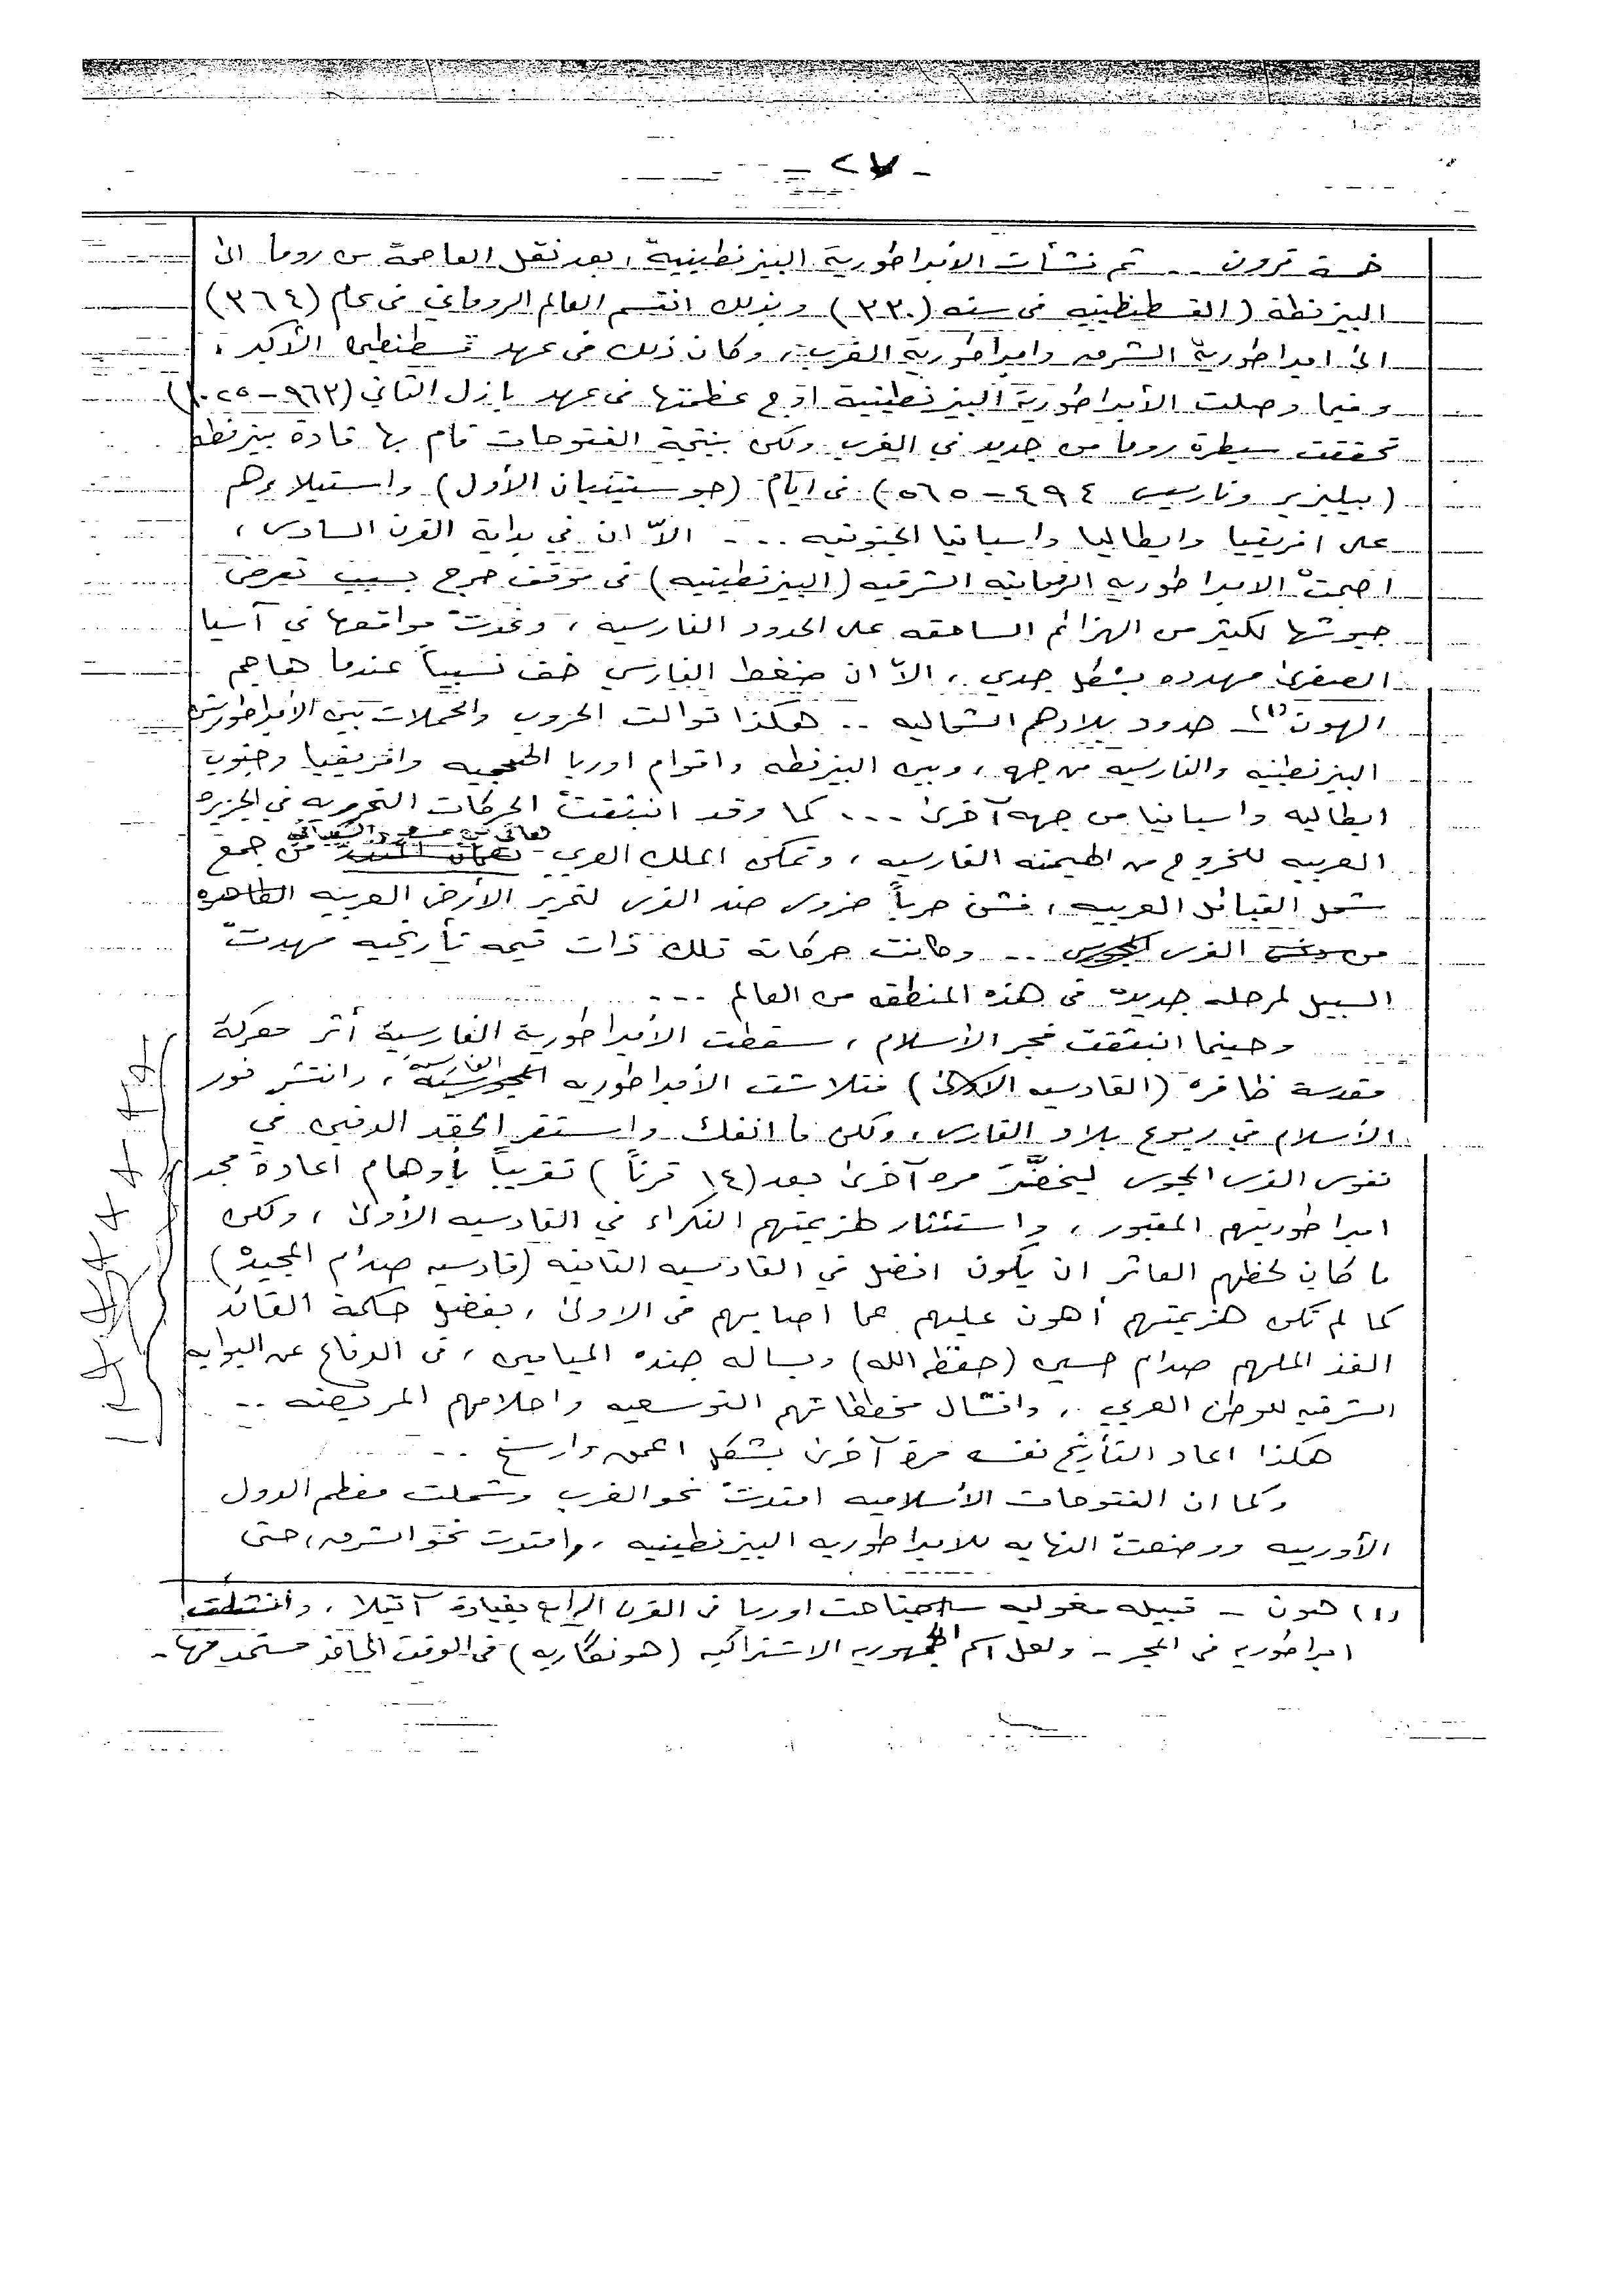 - ٢٧ -
خمسة قرون .. ثم نشأت الأمبراطورية البيزنطينية، بعد نقل العاصمة من روما الى
البيزنطة (القسطنطينيه فى سنه (٣٣٠) وبذلك انقسم العالم الروماني فى عام (٣٦٤)
الى امبراطورية الشرق وامبراطورية الغرب، وكان ذلك فى عهد قسطنطين الأكبر.
وفيما وصلت الأمبراطورية البيزنطينية اوج عظمتها فى عهد بازل الثاني (٩٦٣ - ١٠٢٥)
تحققت سيطرة روما من جديد في الغرب ولكن بنتيجة الفتوحات قام بها قادة بيزنطه
(بيليزير ونارسيس ٤٩٤ - ٥٦٥) فى ايام (جوستينيان الأول) واستيلاءهم
على افريقيا وايطاليا واسبانيا الجنوبيه ... الاّ ان في بداية القرن السادس،
اضحت الامبراطوريه الرومانيه الشرقيه (البيزنطينيه) فى موقف حرج بسبب تعرض
جيوشها لكثير من الهزائم الساحقه على الحدود الفارسيه، وغدت مواقعها في آسيا
الصغرى مهدده بشكل جدي، الاّ ان ضغط الفارسي خف نسبياً عندما هاجم
الهون (١) حدود بلادهم الشماليه .. هكذا توالت الحروب والحملات بين الأمبراطوريتين
البيزنطينيه والفارسيه من جهه، وبين البيزنطه واقوام اوربا الهمجيه وافريقيا وجنوب
ايطاليه واسبانيا من جهه آخرى ... كما وقد انبثقت الحركات التحرريه في الجزيره
العربيه للخروج من الهيمنه الفارسيه، وتمكن الملك العربي هانى بن مسعود الشيباني من جمع
شمل القبائل العربيه، فشن حرباً ضروس ضد الفرس لتحرير الأرض العربيه الطاهره
من دنس الفرس المجوس .. وكانت حركاته تلك ذات قيمه تأريخيه مهدت
السبيل لمرحله جديده فى هذه المنطقه من العالم ...
وحينما انبثقت فجر الأسلام، سقطت الأمبراطورية الفارسية أثر معركة
مقدسة ظافره (القادسيه الاولى) فتلاشت الأمبراطوريه المجوسية الفارسيه، وانتشر نور
الأسلام في ربوع بلاد الفارس، ولكن ما انفك واستقر الحقد الدفين في
نفوس الفرس المجوس ليخضَّر مره آخرى بعد (١٤ قرناً) تقريباً بأوهام اعادة مجد
امبراطوريتهم المقبور، واستئثار هزيمتهم النكراء في القادسيه الأولى، ولكن
ما كان لحظهم العاثر ان يكون افضل في القادسيه الثانيه (قادسيه صدام المجيده)
كما لم تكن هزيمتهم أهون عليهم عما اصابهم فى الاولى، بفضل حكمة القائد
الفذ الملهم صدام حسين (حفظه الله) وبساله جنده الميامين، فى الدفاع عن البوابه
الشرقيه للوطن العربي، وافشال مخططاتهم التوسعيه واحلامهم المريضه ..
هكذا اعاد التأريخ نفسه مرة آخرى بشكل اعمق وارسخ ..
وكما ان الفتوحات الأسلاميه امتدت نحو الغرب وشملت معظم الدول
الأوربيه ووضعت النهايه للامبراطوريه البيزنطينيه، وامتدت نحو الشرق، حتى
(١) هون - قبيله مغوليه اجتاحت اوربا فى القرن الرابع بقيادة آتيلا، وانشئت
امبراطوريه فى المجر - ولعل اسم الجمهوريه الاشتراكيه (هونگاريه) فى الوقت الحاضر مستمد منها -